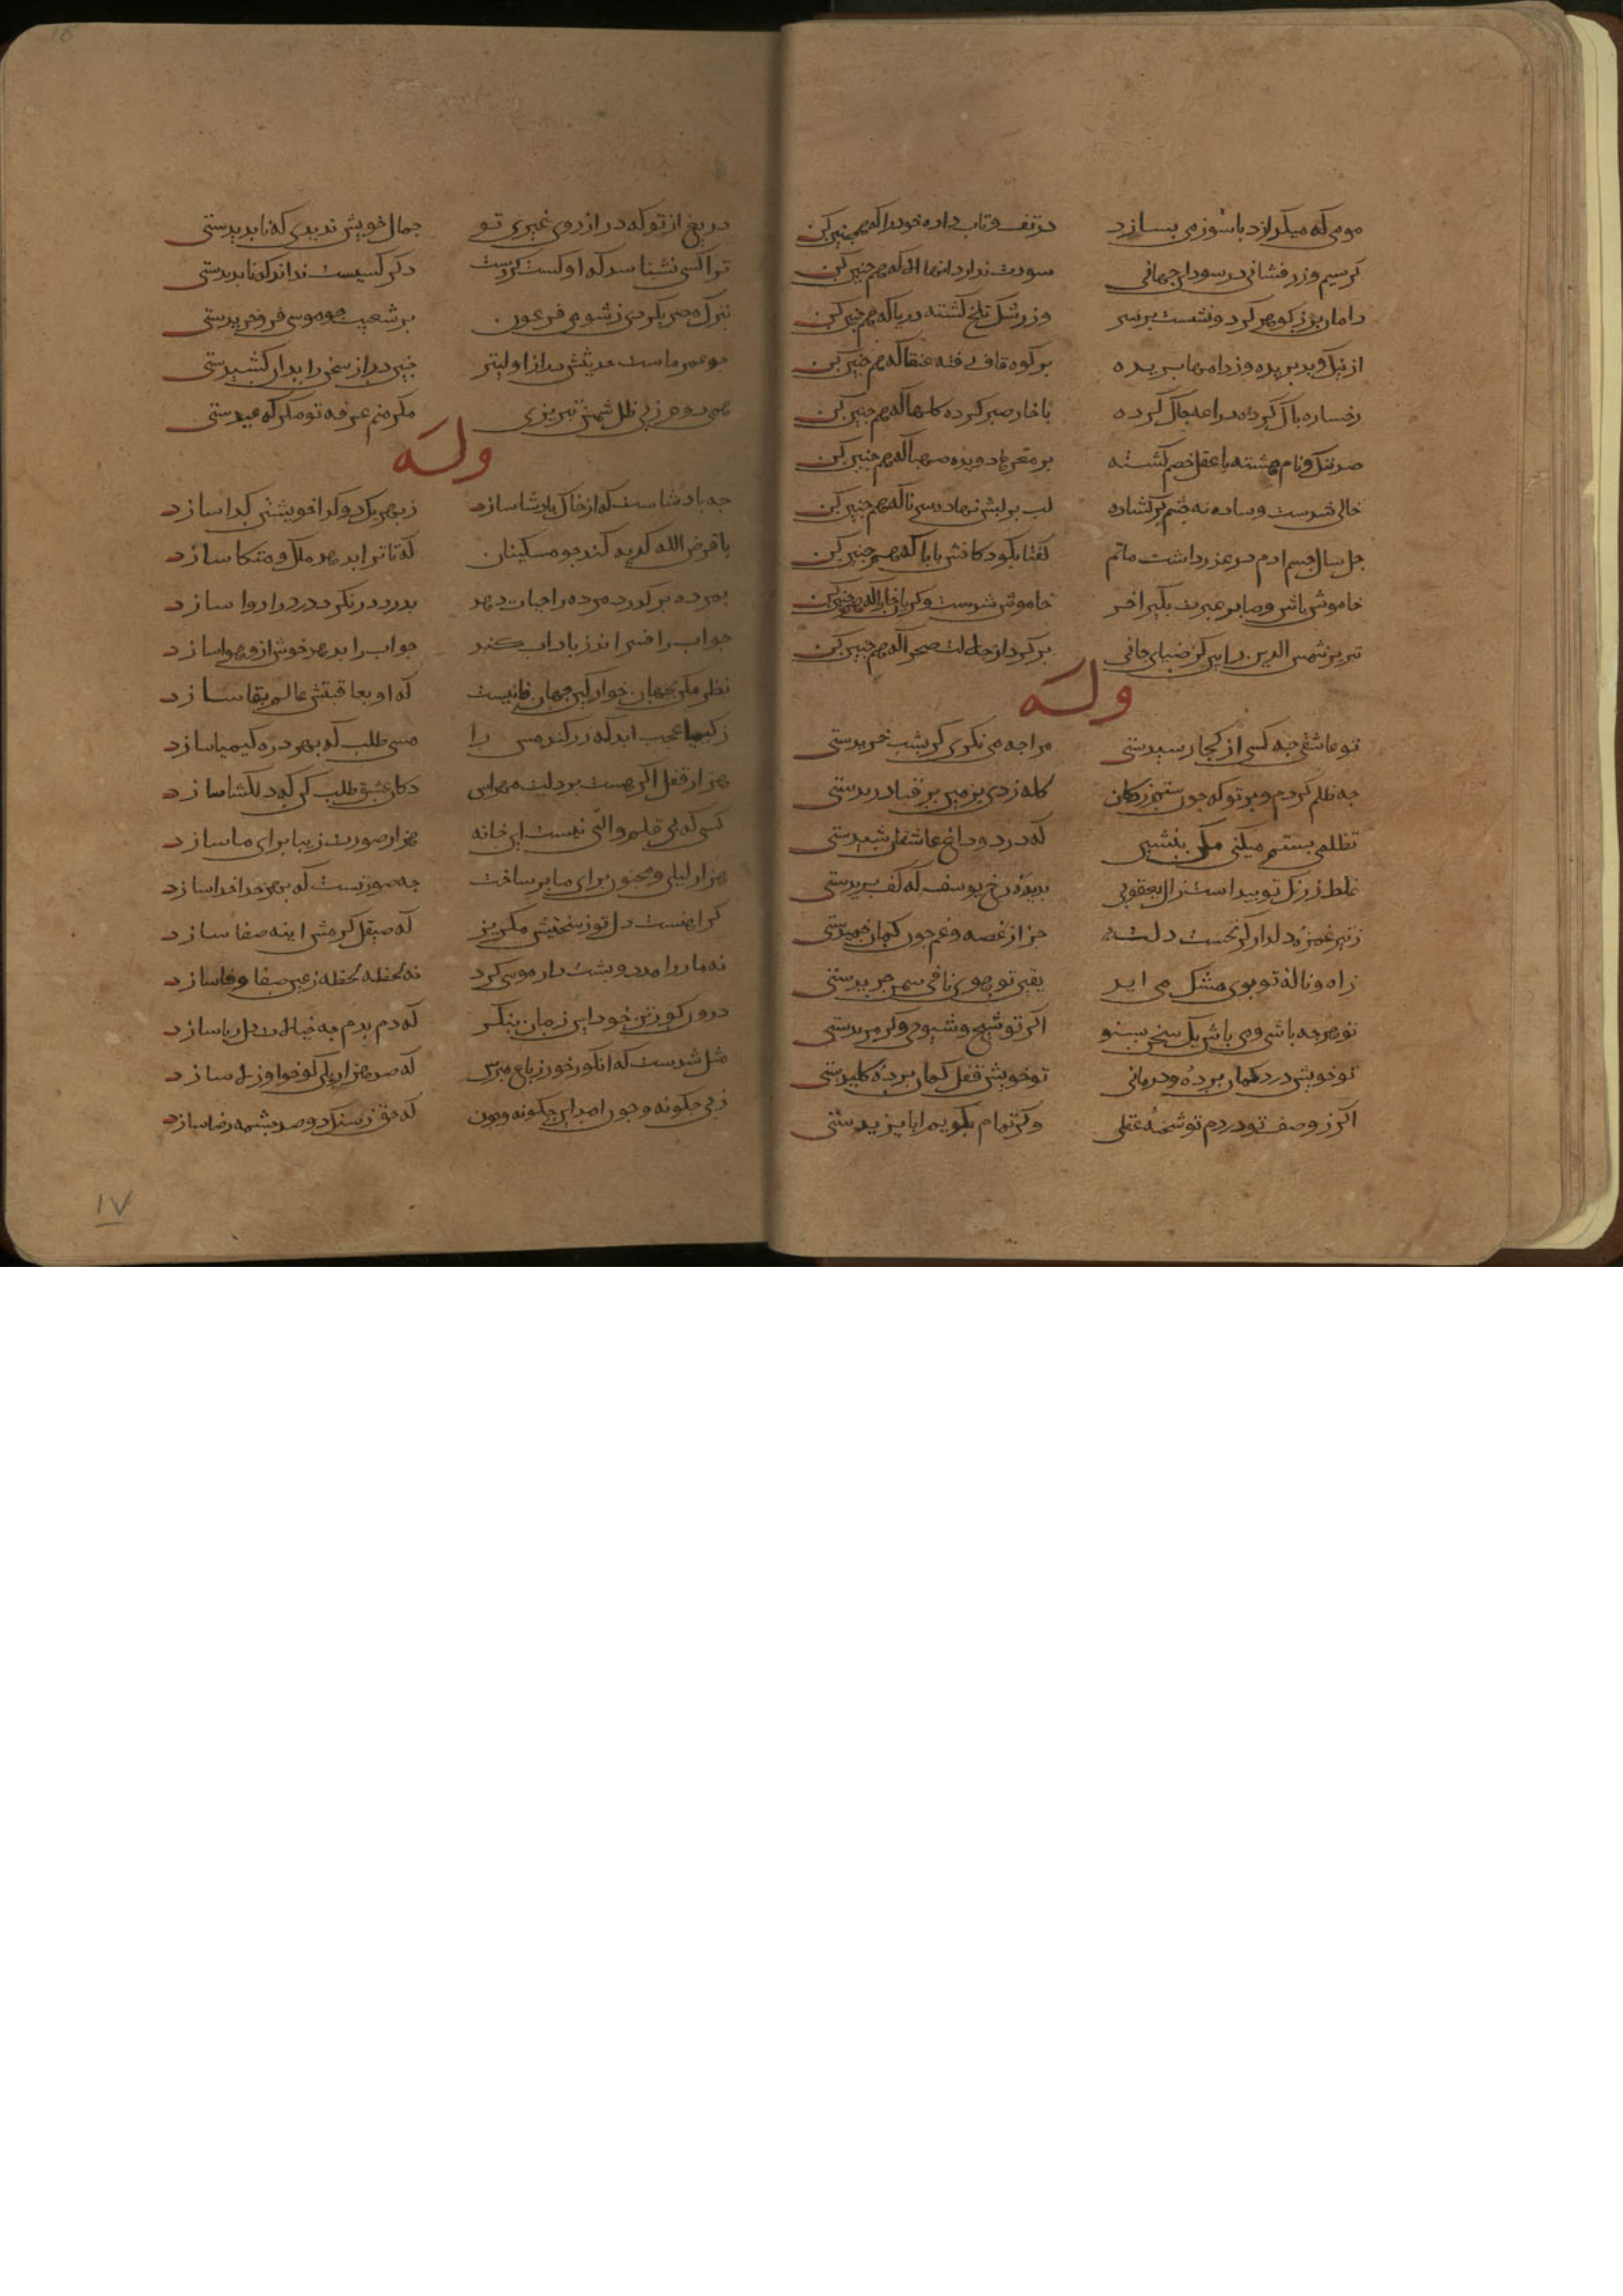 مومی که میکدازد باسوزمی بسازد در تف و تاب داده خود را که همچنین کن
کر سیم و زر فشانی در سودا جهانی سودت ندارد انها الا که همچنین کن
دامان پر ز کوهر کرد و نشست بر سر وز رشک تلخ کشته دریا که همچنین کن
از نیک و بد بریده وز دامها پریده بر کوه قاف رفته عنقا که همچنین کن
رخساره باک کرده دراعه جاک کرده با خار صبر کرده کلها که همچنین کن
صد ننک و نام هشته با عقل خصم کشته بر مغزها دویده صهبا که همچنین کن
خالی شدست و ساده نه جشم بر کشاده لب بر لبش نهاده سرنا که همچنین کن
جل سال جسم ادم در عذر داشت ماتم کفتا بکودکانش بابا که همچنین کن
خاموش باش و صابر عبرت بکیر اخر خاموش شدست و کریان خارا که همچنین کن
تبریز شمس الدین را بین کز ضیای جانی بر کرد از جلالت صحرا که همچنین کن
وله
تو عاشقی جه کسی از کجا رسیدستی مرا جه می نکری کژ بشب خریدستی
جه ظلم کردم و بر تو که جون ستم زدکان کله زدی بزمین بر قبا دریدستی
تظلمی بستم میکنی مکن بنشین که درد و داغ عاشقان شبیدستی
غلط ز رنک تو بیداست زال یعقوبی بدیده رخ یوسف که کف بریدستی
ز تیر غمزه دلدار کر نخست دلت جز از غصه و غم جون کمان خمیدستی
ز اه و ناله تو بوی مشک می اید یقین تو هوی نافی سمن جریدستی
تو هر جه باشی و می باش یک سخن بشنو اکر تو شیخ شیوخی و کر مریدستی
تو خویش درد کمان برده و درمانی تو خویش قفل کمان برده کلیدستی
اکر ز وصف تو دزدم تو شحنه عقلی و کر تمام بکویم ابا یزیدستی
دریغ از تو که در ارزوی غیری تو جمال خویش ندیدی که نابدیدستی
ترا کسی نشناسد که او کست کردست دکر کسیست نداند که نابدیدستی
بترک مصر بکردی ز شومی فرعون بر شعیب جو موسی فرو خزیدستی
جو عمر ماست حدیثش دراز اولیتر جنین دراز سخن را بدان کشیدستی
همی دود ز پی ظل شمس تبریزی مکر منم عرفه تو مکر که عیدستی
وله
جه بادشاست که از خاک بادشا سازد ز بهر یک دو کدا خویشتن کدا سازد
باقرض الله کدیه کند جو مسکینان که تا ترا بدهد ملک و متکا سازد
بمرده بر کذرد مرده را حیات دهد بدرد در نکرد درد را دوا سازد
جو اب را فسراند ز باد اب کند جو اب را بدهد خوش ازو هوا سازد
نظر مکن بجهان خوار کین جهان فانیست که او بعاقبتش عالم بقا سازد
ز کیمیا عجب اید که زر کند مس را مسی طلب که بهر ذره کیمیا سازد
هزار قفل اکر هست بر دلت مهراس دکان عشق طلب کن که دلکشا سازد
کسی که بی قلم و التی نیست این خانه هزار صورت زیبا برای ما سازد
هزار لیلی و مجنون برای ما بر ساخت جه صورتست که بهر خدا خدا سازد
کر اهنست دل تو ز سختیش مکریز که صیقل کرمش اینه صفا سازد
نه مار را مدد و بشت دار موسی کرد نه لحظه لحظه ز عین جفا وفا سازد
درون کور تن خود این زمان بنکر که دم بدم جه خیالات دلربا سازد
مثل شدست که انکور خور ز باغ مپرس که صد هزار یکی کو خوا و زله سازد
ز بی جکونه و جون امد این جکونه و جون که حق ز سنک دو صد جشمه رضا سازد
۱۷